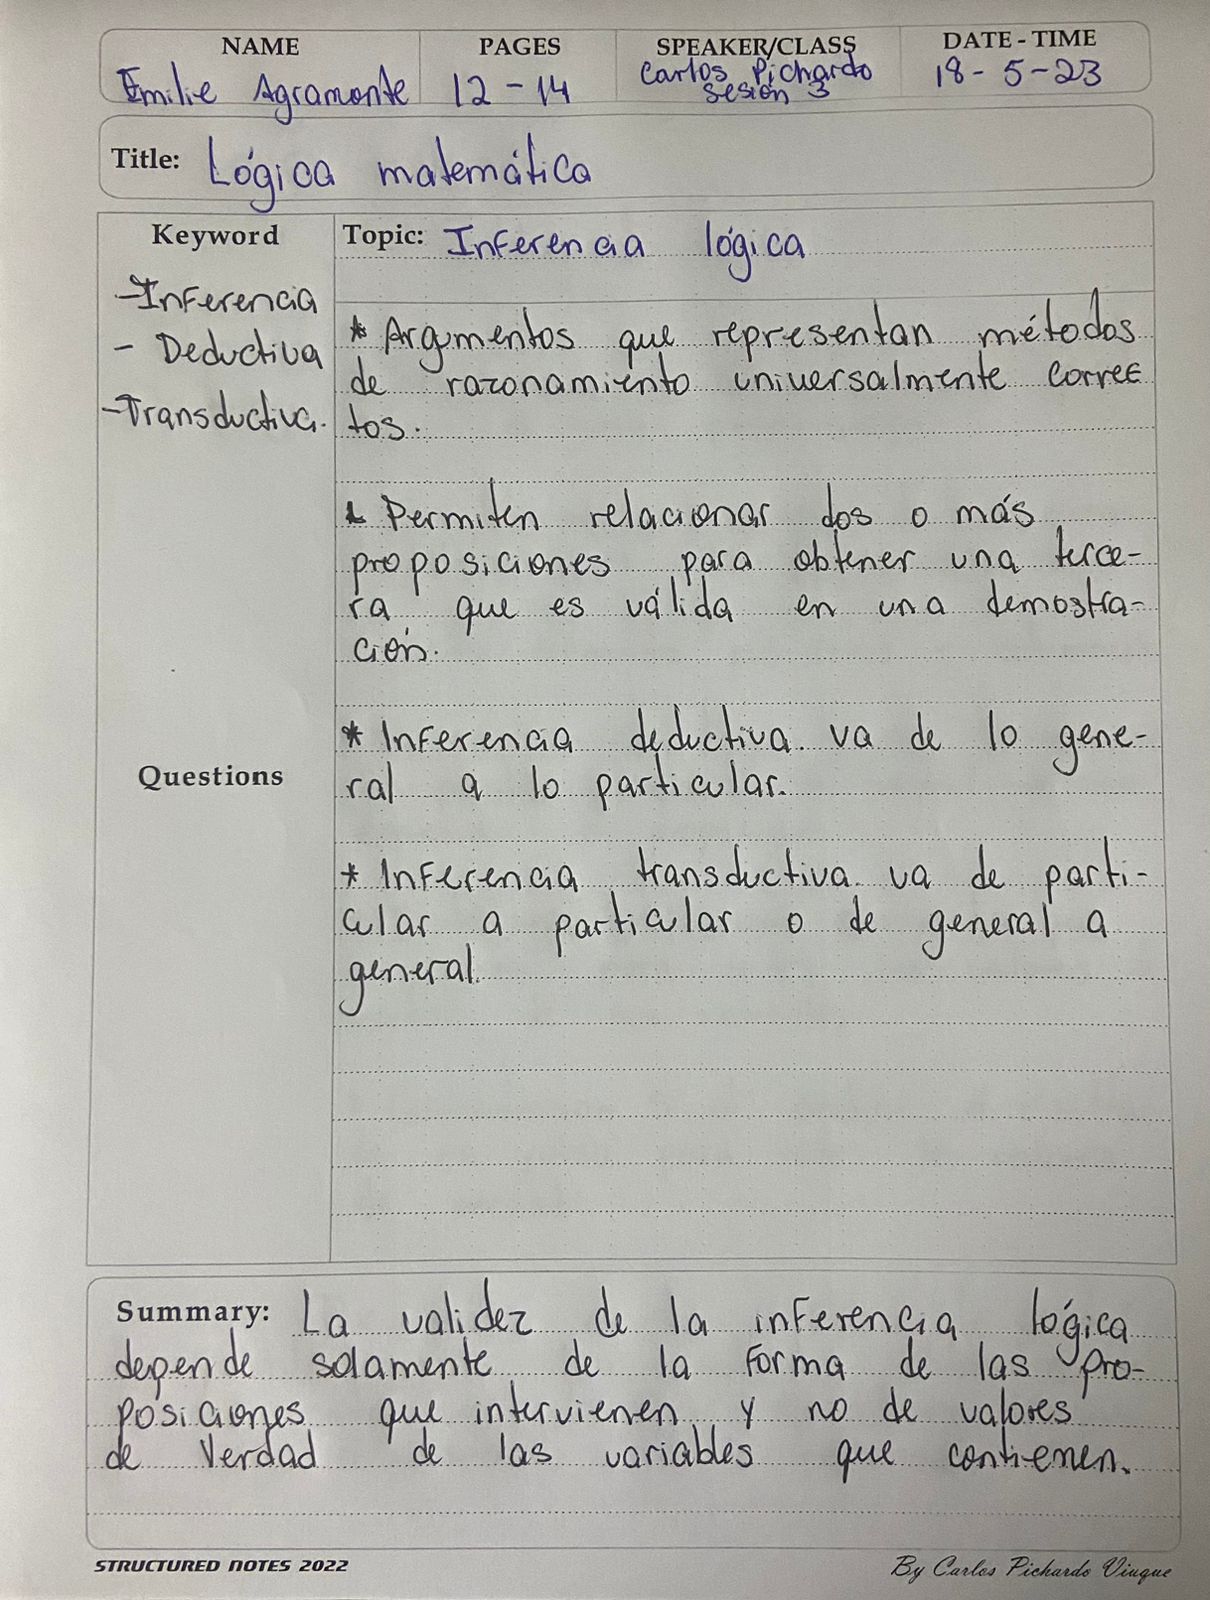 NAME PAGES SPEAKER/CLASS DATE - TIME
Emilie Agramonte 12 - 14 Carlos Pichardo Sesión 3 18 - 5 - 23
Title: Lógica matemática
Keyword
- Inferencia
- Deductiva
- Transductiva.
Questions
Topic: Inferencia lógica
* Argumentos que representan métodos
de razonamiento universalmente correc
tos.
* Permiten relacionar dos o más
proposiciones para obtener una terce-
ra que es válida en una demostra-
ción.
* Inferencia deductiva va de lo gene-
ral a lo particular.
* Inferencia transductiva va de parti-
cular a particular o de general a
general.
Summary: La validez de la inferencia lógica
depende solamente de la forma de las pro-
posiciones que intervienen y no de valores
de verdad de las variables que contienen.
STRUCTURED NOTES 2022
By Carlos Pichardo Viuque